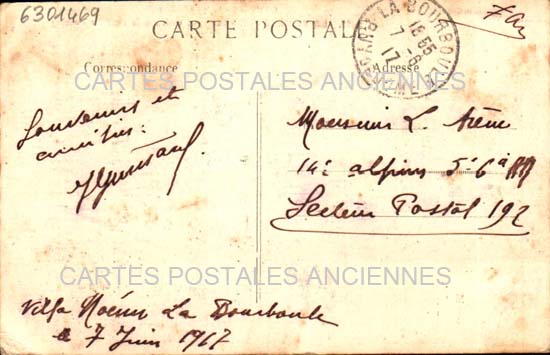 6301469
CARTE POSTALE
Correspondance
Adresse
LA BOURBOULE
18 55
7 - 6
17
CARTES POSTALES ANCIENNES
Souvenirs et
amitiés.
Monsieur L. Arène
14e alpins 5e 6e
Secteur Postal 192
CARTES POSTALES ANCIENNES
Villa Noému La Bourboule
le 7 Juin 1917